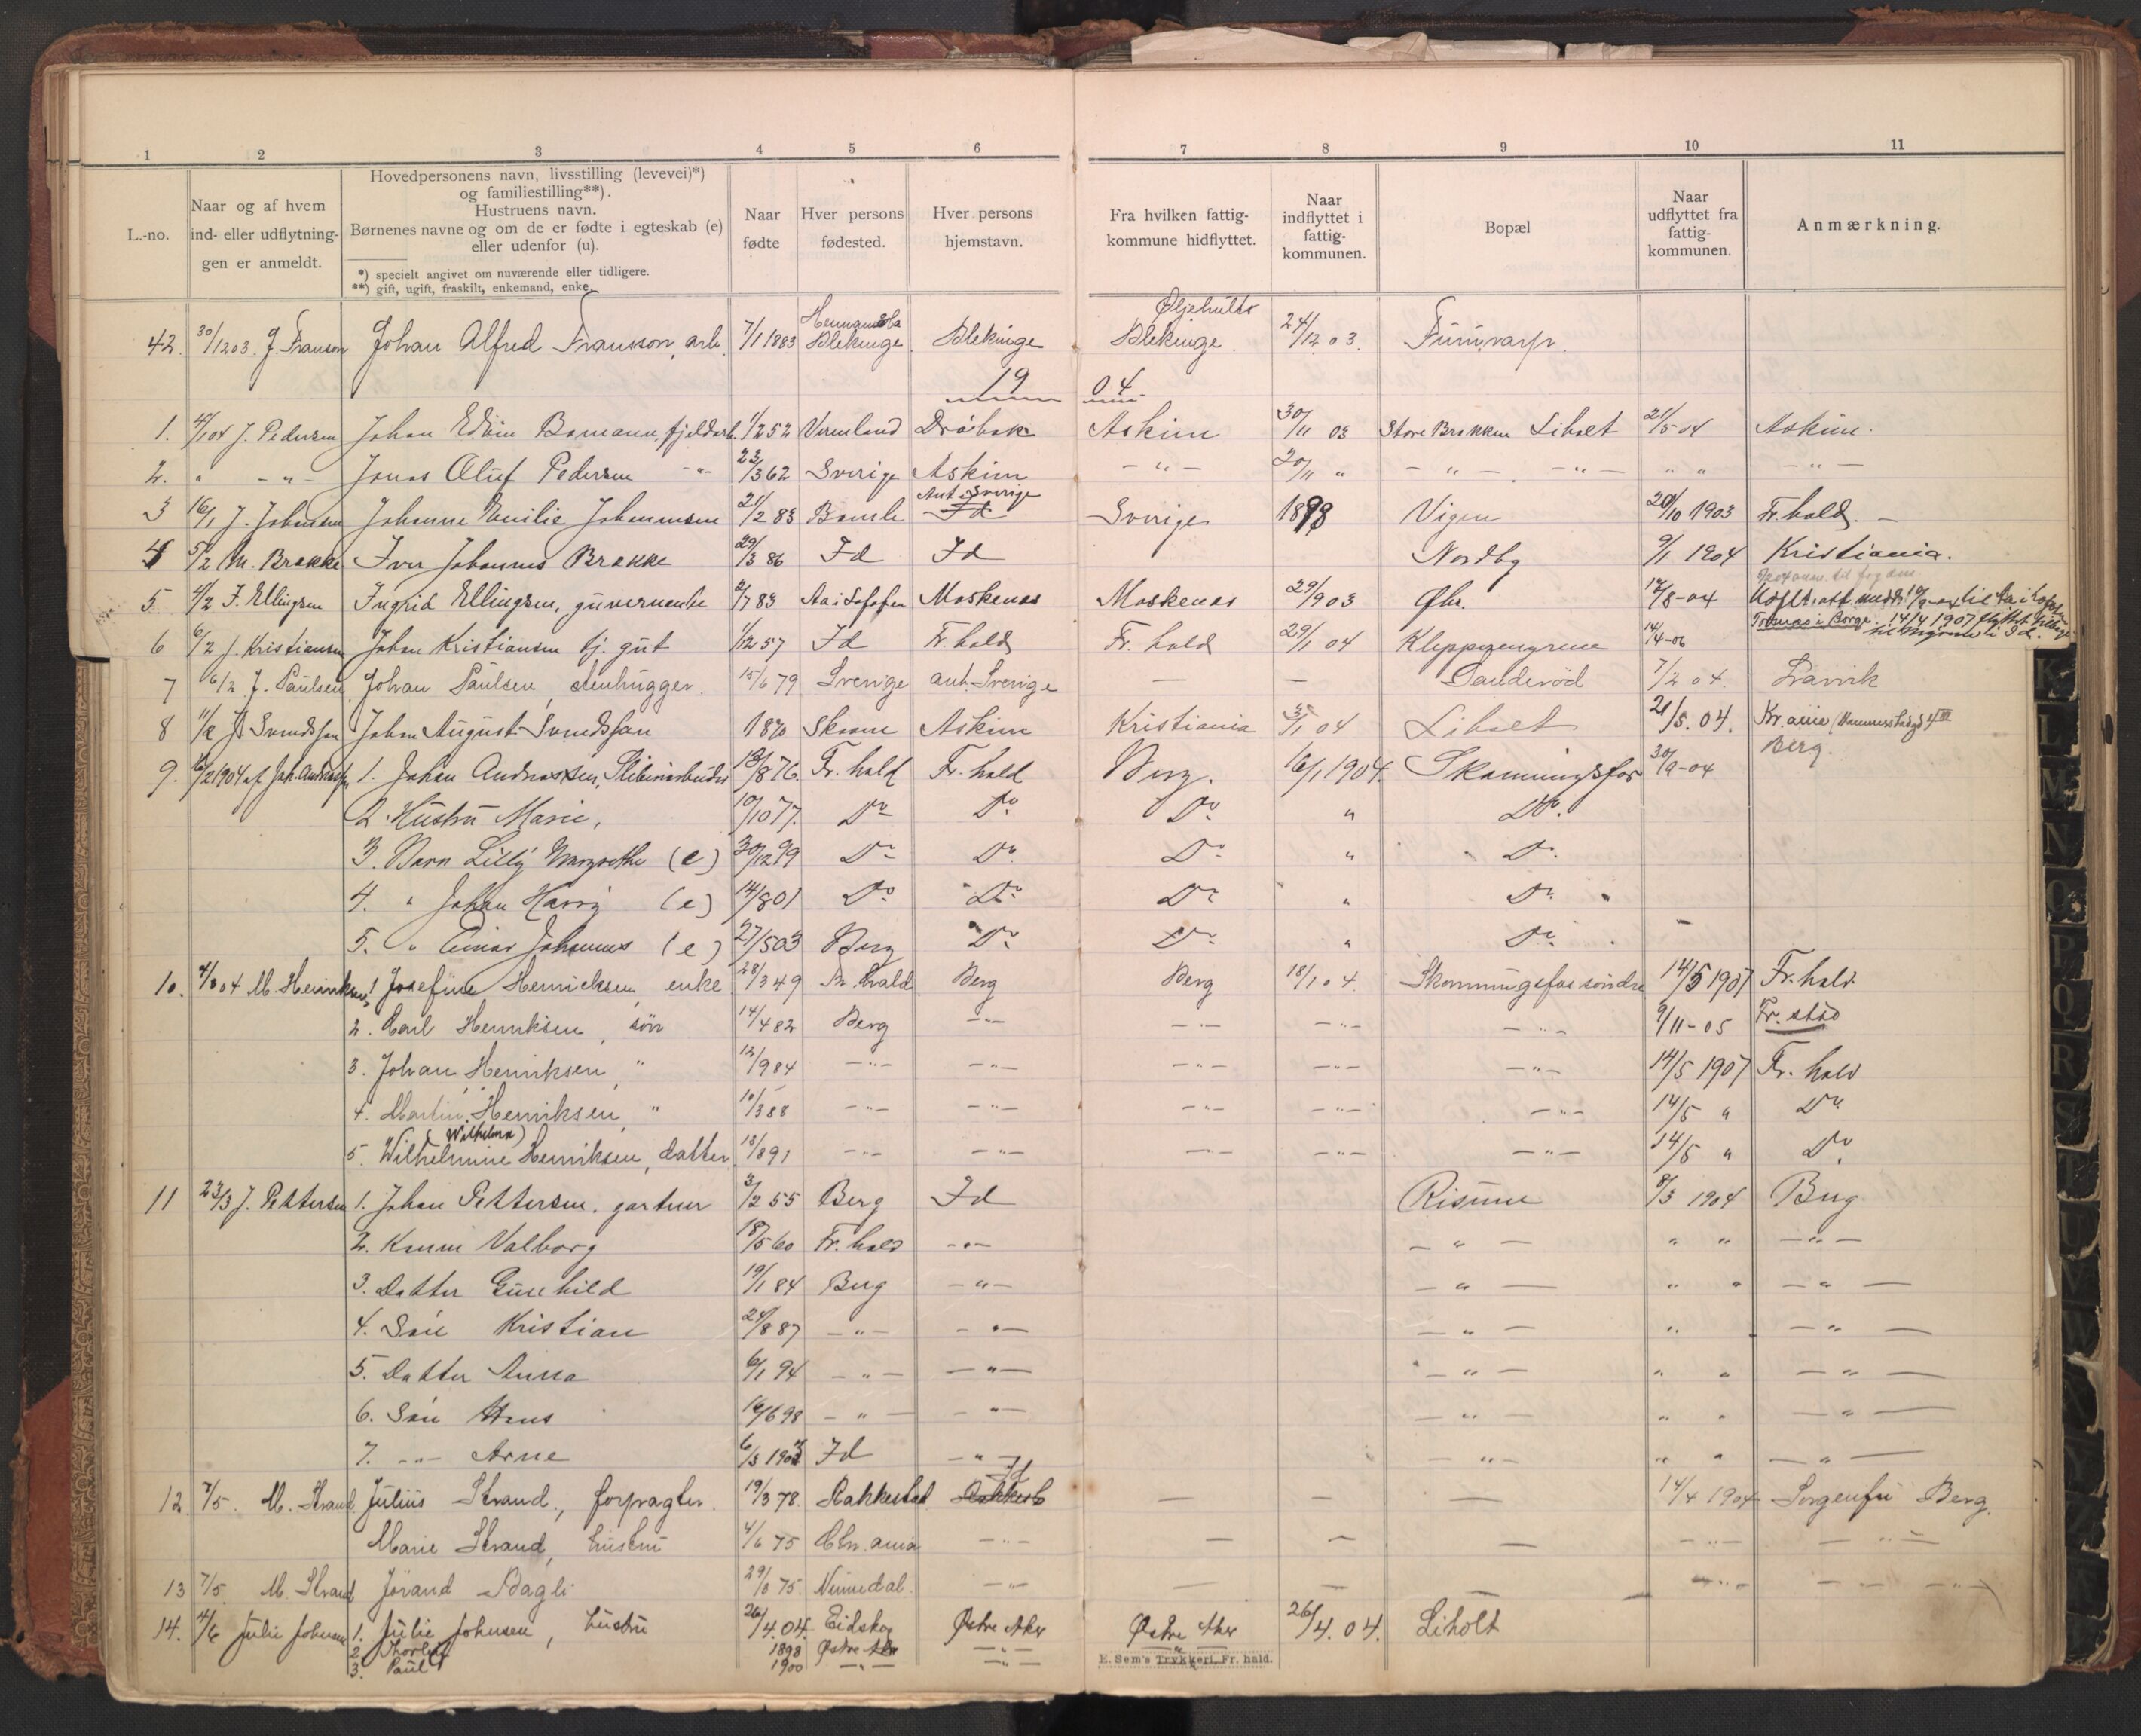 1 2 3 4 5 6 7 8 9 10 11
L.-no.
Naar og af hvem
ind- eller udflytnin-
gen er anmeldt.
Hovedpersonens navn, livsstilling (levevei)*)
og familiestilling**).
Hustruens navn.
Børnenes navne og om de er fødte i egteskab (e)
eller udenfor (u).
*) specielt angivet om nuværende eller tidligere.
**) gift, ugift, fraskilt, enkemand, enke.
Naar
fødte
Hver persons
fødested.
Hver persons
hjemstavn.
Fra hvilken fattig-
kommune hidflyttet.
Naar
indflyttet i
fattig-
kommunen.
Bopæl
Naar
udflyttet fra
fattig-
kommunen.
Anmærkning.
Øljehults
42. 30/12 03 J. Franson Johan Alfred Fransson, arb. 7/1 1883 Blekinge Blekinge Blekinge. 24/12 03.
19 04
1. 4/1 04 J. Pedersen Johan Edvin Bomann, fjeldarb. 1/2 52 Vermland Drøbak Askim 30/11 03 Store Brekken Liholt 21/5 04 Askim.
2. " -"- Jonas Oluf Pedersen -"- 23/3 62 Sverige Askim -"- 30/11 " -"- -"- " " -"-
Ant. Sverige
3 16/1 J. Johansen Johanne Emilie Johannesen 21/2 83 Bamle Id Sverige 1898 Vigen 20/10 1903 Fr.hald.
4 5/2 M. Brekke Iver Johannes Brekke 29/3 86 Id Id Nordby 9/1 1904 Kristiania.
5. 4/2 I. Ellingsen Ingrid Ellingsen, guvernante 2/7 83 Aa i Lofoten Moskenes Moskenes 29/9 03 Øbr. 12/8-04
Borge. 14/4 1907 flyttet
6 6/2 J. Kristiansen Johan Kristiansen tj. gut 1/12 57 Id Fr.hald Fr. hald 29/1 04 14/4-06
7 6/2 J. Paulsen Johan Paulsen, stenhugger. 15/6 79 Sverige ant. Sverige — — Sanderød 7/2 04
8 11/2 J. Svendssen Johan August Svendssen 1870 Skaane Askim Kristiania 30/1 04 Liholt 21/5. 04. Kr.ania
Berg.
9. 16/2 1904 af Joh. Andreassen 1. Johan Andreassen, Sliberiarbeider 18/8 76. Fr. hald Fr. hald Berg. 16/1 1904. Skonningsfos 30/9-04
2. Hustru Marie, 10/10 77. Do Do Do " Do.
3. Barn Lilly Margrethe (e) 30/12 99 Do Do Do " Do
4. " Johan Harry (e) 14/8 01 Do Do Do " Do
5. " Einar Johannes (e) 27/5 03 Berg Do Do " Do
10. 4/3 04 M. Henriksen 1 Josefine Henricksen enke 28/3 49 Fr. hald Berg Berg 18/1 04. Skonningsfos søndre 14/5 1907 Fr. hald.
2. Carl Henriksen, søn 14/4 82 Berg -"- -"- -"- -"- 9/11-05 Fr. stad
3. Johan Henriksen, " 12/9 84 -"- -"- -"- -"- -"- 14/5 1907 Fr. hald
4. Martin Henriksen, " 10/3 88 -"- -"- -"- -"- -"- 14/5 " Do
(Wilhelma)
5. Wilhelmine Henriksen, datter 13/8 91 -"- -"- -"- -"- -"- 14/5 " Do
11 23/3 J. Pettersen 1. Johan Pettersen. gartner 3/2 55 Berg Id Risum 8/3 1904 Berg
2. Kone Valborg 18/5 60 Fr. hald -"- -"- " " -"-
3. Datter Gunhild 19/1 84 Berg -"- -"- " " -"-
4. Søn Kristian 24/8 87 -"- -"- -"- " -"-
5. Datter Anna 6/1 94 -"- -"- -"- " " -"-
6. Søn Hans 16/6 98 -"- -"- -"- " " -"-
7. -"- Arne 6/3 1903 Id -"- -"- " " -"-
Id
12. 7/5. M. Strand Julius Strand, forpagter. 19/3 78. Rakkestad Rakkest. — — — 14/4 1904 Sorgenfri Berg.
Marie Strand, hustru 4/6 75 Chr. ania -"- — — — -"- -"-
13 7/5. M. Strand Jørand Bagli 29/8 75 Numedal. -"- — — — -"- -"-
14. 4/6 Julie Johnsen 1. Julie Johnsen, hustru 26/4. 04. Eidskog Østre Aker Østre Aker 26/4. 04. Liholt
2. Thorleif 1898 Østre Aker -"- -"-
3. Paul 1900 -"- -"-
E. Sem's Trykkeri, Fr. hald.
K L M N O P Q R S T U V W